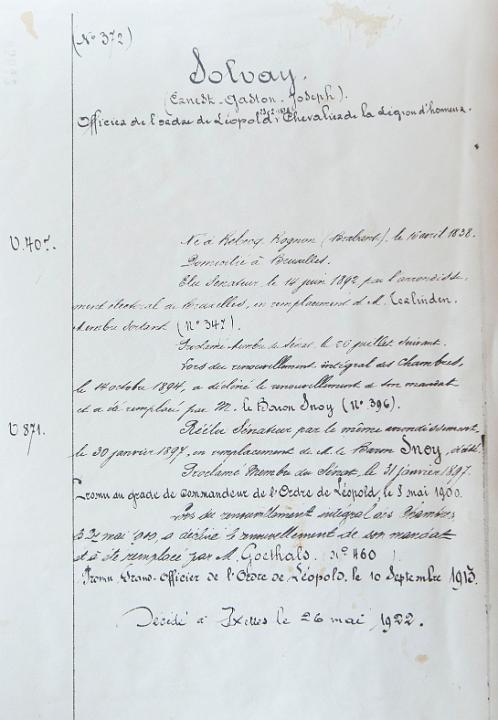 (N° 372)
Solvay.
(Ernest-Gaston-Joseph).
Officier de l'ordre de Léopold, Chevalier de la Légion d'honneur.
V. 407. Né à Rebecq Rognon (Brabant), le 16 avril 1838.
Domicilié à Bruxelles.
Elu Sénateur, le 14 juin 1892 par l'arrondisse-
ment électoral de Bruxelles, en remplacement de M. Terlinden.
Membre sortant (N° 347).
Proclamé Membre du Sénat, le 26 juillet suivant.
Lors du renouvellement intégral des Chambres,
le 14 octobre 1894, a décliné le renouvellement de son mandat
et a été remplacé par M. le Baron Snoy (N° 396).
V 871. Réélu Sénateur par le même arrondissement,
le 30 janvier 1897, en remplacement de M. le Baron Snoy, décédé.
Proclamé Membre du Sénat, le 31 janvier 1897.
Promu au grade de Commandeur de l'Ordre de Léopold, le 5 mai 1900.
Lors du renouvellement intégral des Chambres,
le 27 mai 1900, a décliné le renouvellement de son mandat
et a été remplacé par M. Goethals. (N° 460).
Promu Grand-Officier de l'Ordre de Léopold, le 10 Septembre 1913.
Décédé à Ixelles le 26 mai 1922.